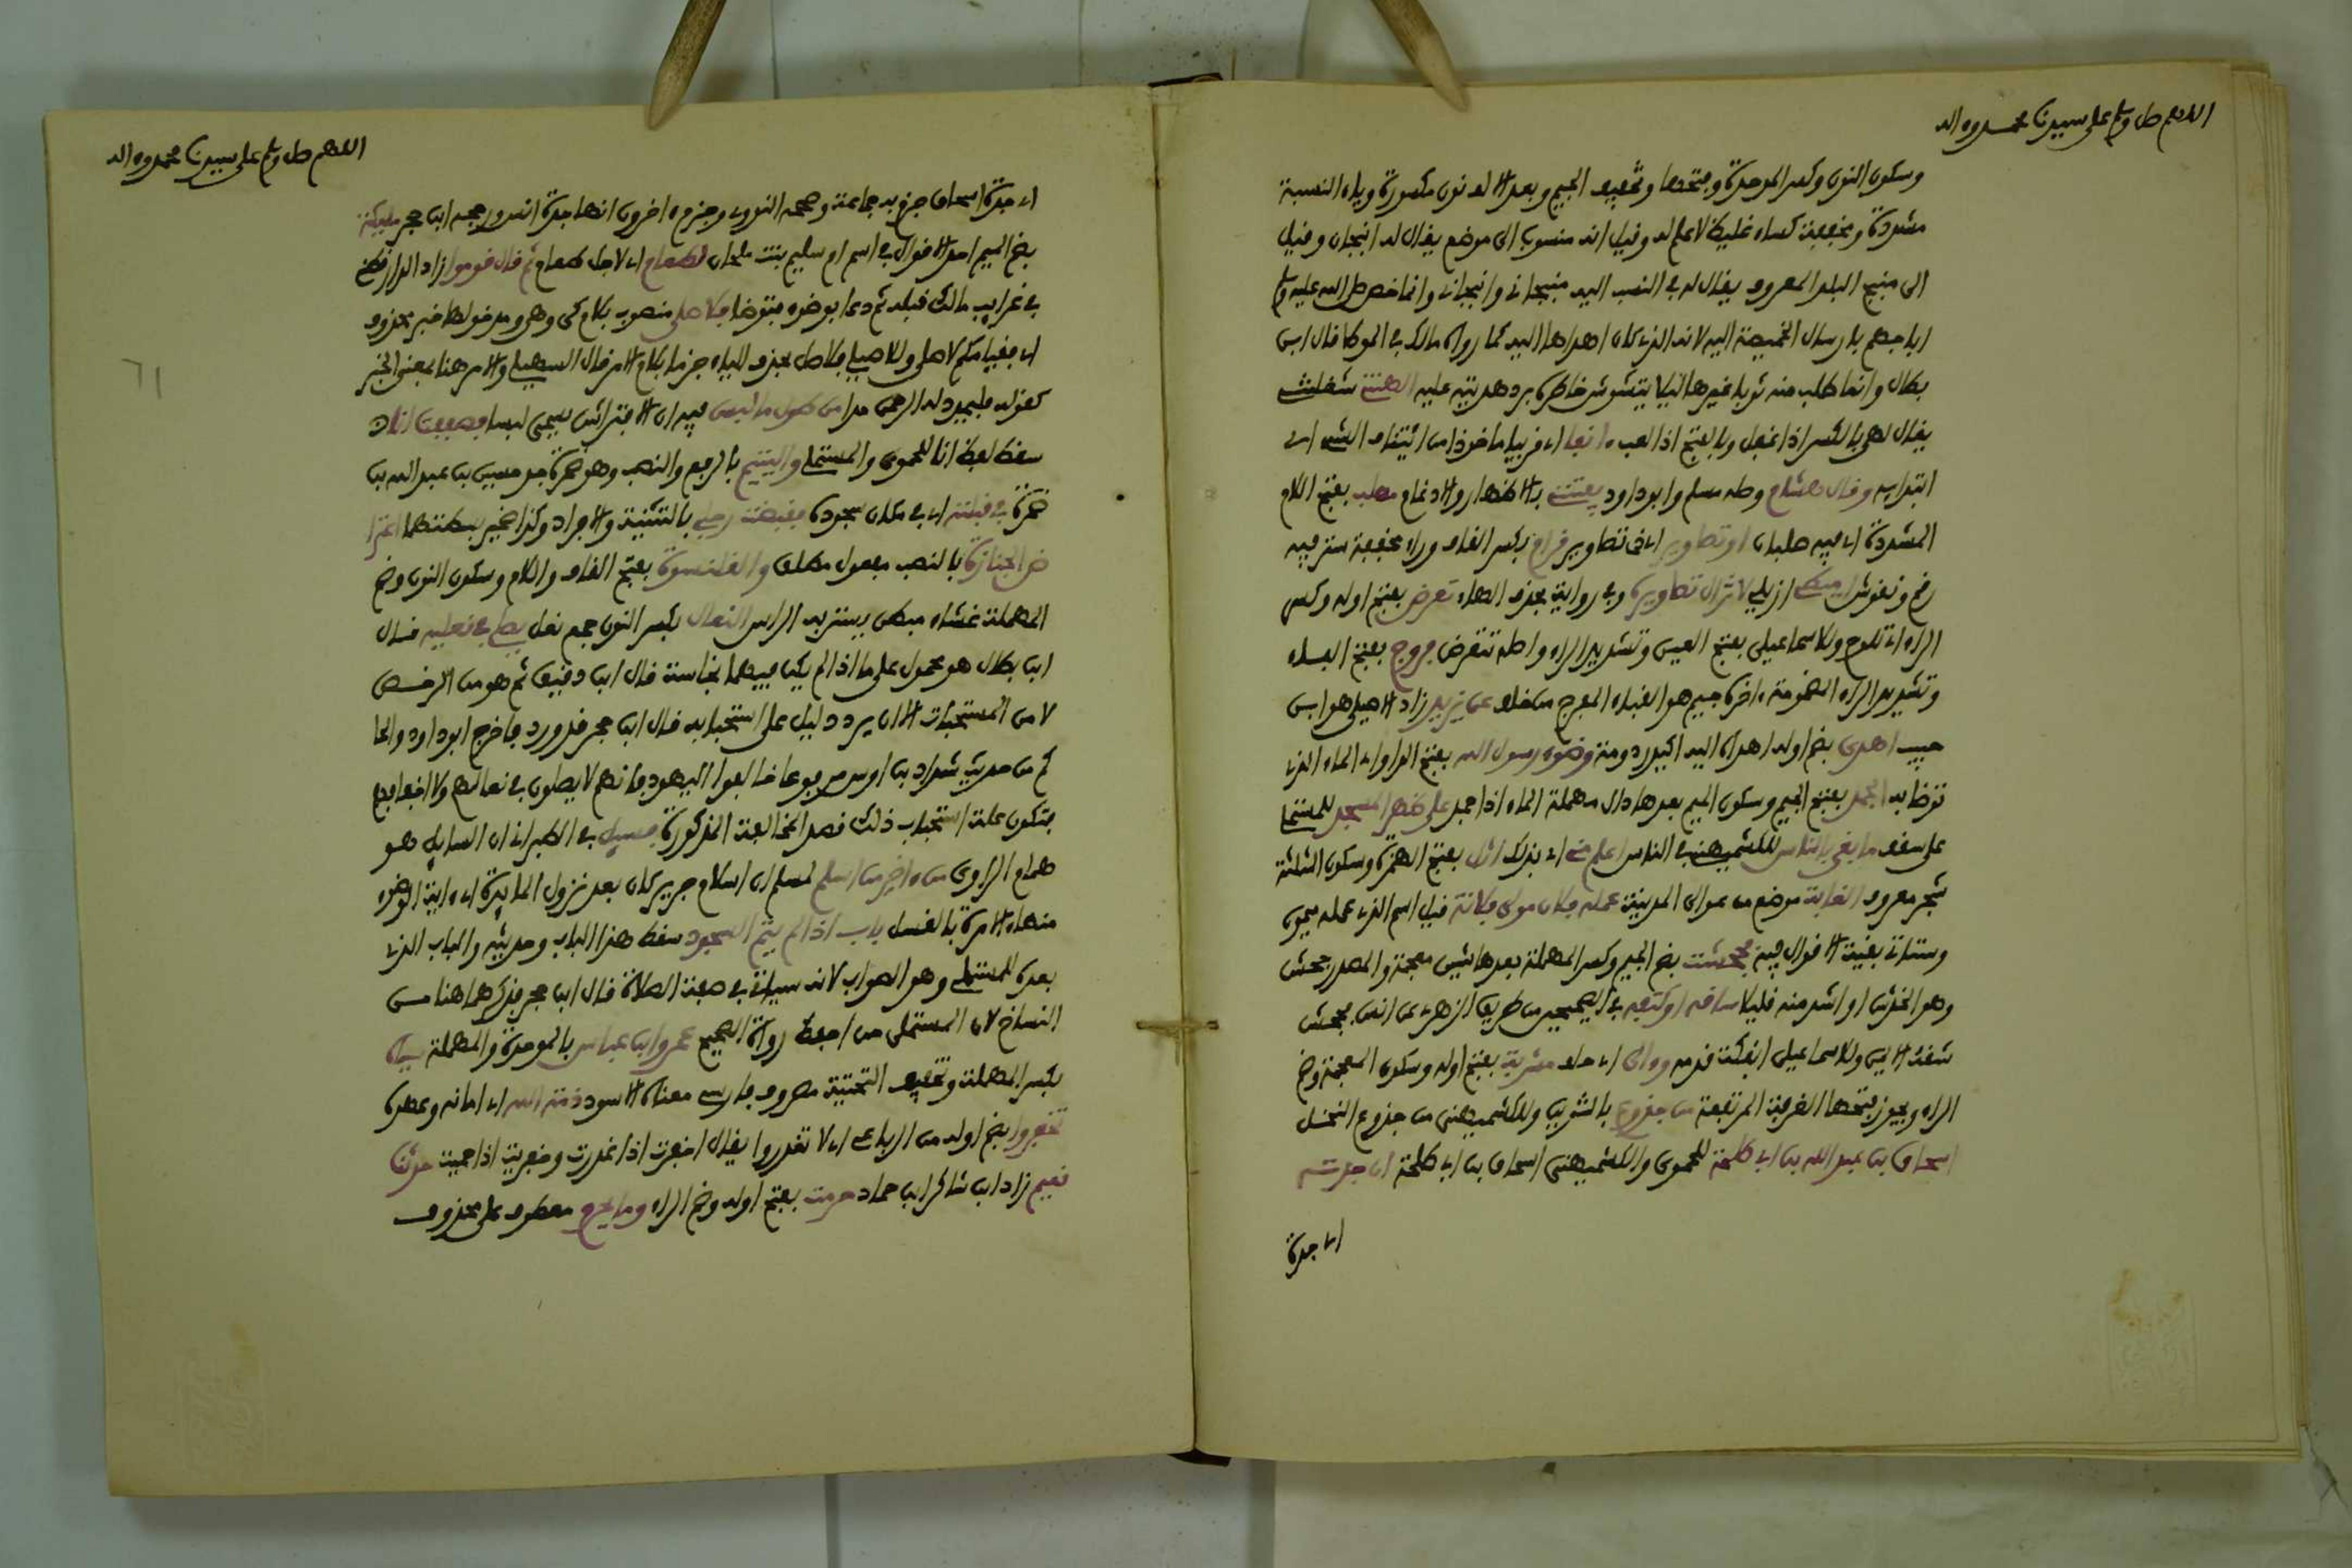 اللهم صل وسلم على سيدنا محمد وءاله
وسكون النون وكسر الموحدة وفتحها وتخفيف الجيم وبعد الالف نون مكسورة وياء النسبة
مشددة ومخففة كساء غليظ لا علم له وقيل انه منسوب الى موضع يقال له انبجان وقيل
الى منبج البلد المعروف يقال له في النسب اليه منبجاني وانبجاني وانما خص صلى الله عليه وسلم
ابا جهم بارسال الخميصة اليه لانه الذي كان اهداها اليه كما رواه مالك في الموطا قال ابن
بطال وانما طلب منه ثوبا غيرها ليلا يتشوش خاطره برد هديته عليه الهتني شغلتني
يقال لهى بالكسر اذا غفل وبالفتح اذا لعب ءانفا اي قريبا ماخوذ من ائتناف الشيء اي
ابتدايه وقال هشام وصله مسلم وابو داود يفتنني بالاظهار والادغام مصلب بفتح اللام
المشددة اي فيه صلبان او تصاوير اي في تصاوير قرام بكسر القاف وراء مخففة ستر فيه
رقم ونقوش اميطي ازيلي لا تزال تصاويره وفي رواية بحذف الهاء تعرض بفتح اوله وكسر
الراء اي تلوح وللاسماعيلي بفتح العين وتشديد الراء واصله تتعرض فروج بفتح الفاء
وتشديد الراء المضمومة ءاخره جيم هو القباء المفرج من خلف عن يزيد زاد الاصيلي هو ابن
حبيب اهدى بضم اوله اهداه اليه اكيدر دومة وضوء رسول الله بفتح الواو اي الماء الذي
توضا به الجمد بفتح الجيم وسكون الميم بعدها دال مهملة الماء اذا جمد على ظهر المسجد للمستملي
على سقف ما بقي بالناس للكشميهني في الناس اعلم مني اي بذلك اثل بفتح الهمزة وسكون المثلثة
شجر معروف الغابة موضع من عوالي المدينة عمله فلان مولى فلانة قيل اسم الذي عمله ميمون
وستاتي بقية الاقوال فيه فجحشت بضم الجيم وكسر المهملة بعدها شين معجمة والمصدر جحش
وهو الخدش او اشد منه قليلا ساقه او كتفه في الصحيحين من طريق الزهري عن انس فجحش
شقه الايمن وللاسماعيلي انفكت قدمه وءالى اي حلف مشربة بفتح اوله وسكون المعجمة وضم
الراء ويجوز فتحها الغرفة المرتفعة من جذوع بالتنوين وللكشميهني من جذوع النخل
اسحاق بن عبد الله بن ابي طلحة للحموي والكشميهني اسحاق بن ابي طلحة ان جدته
اي جدة
اللهم صل وسلم على سيدنا محمد وءاله
اي جدة اسحاق جزم به جماعة وصححه النووي وجزم ءاخرون انها جدة انس ورجحه ابن حجر مليكة
بضم الميم احد الاقوال في اسم ام سليم بنت ملحان لطعام اي لاجل طعام ثم قال قوموا زاد الدارقطني
في غرايب مالك قبله ثم دعا بوضوء فتوضا فلاصلي منصوب بلام كي وهي ومدخولها خبر محذوف
اي فقيامكم لاصلي وللاصيلي فلاصل بحذف الياء جزما بلام الامر قال السهيلي والامر هنا بمعنى الخبر
كقوله فليمدد له الرحمن مدا من طول ما لبس فيه ان الافتراش يسمى لبسا فصففت انا
سقط لفظ انا للحموي والمستملي واليتيم بالرفع والنصب وهو ضمرة جد حسين بن عبد الله بن
ضمرة في قبلته اي في مكان سجوده فقبضت رجلي بالتثنية والافراد وكذا ضمير بسطتهما اعترا
ض الجنازة بالنصب مفعول مطلق والقلنسوة بفتح القاف واللام وسكون النون وضم
المهملة غشاء مبطن يستر به الراس النعال بكسر النون جمع نعل يصلي في نعليه قال
ابن بطال هو محمول على ما اذا لم يكن فيهما نجاسة قال ابن دقيق ثم هو من الرخص
لا من المستحبات الا ان يرد دليل على استحبابه قال ابن حجر قد ورد فاخرج ابو داود والحا
كم من حديث شداد بن اوس مرفوعا خالفوا اليهود فانهم لا يصلون في نعالهم ولا خفافهم
فتكون علة استحباب ذلك قصد المخالفة المذكورة فسيل في الطبراني ان السايل هو
همام الراوي من ءاخر من اسلم لمسلم ان اسلام جرير كان بعد نزول المايدة اي ءاية الوضوء
منها الامرة بالغسل باب اذا لم يتم السجود سقط هذا الباب وحديثه والباب الذي
بعده للمستملي وهو الصواب لانه سياتي في صفة الصلاة قال ابن حجر فذكرهما هنا من
النساخ لان المستملي من احفظ رواة الصحيح عمرو ابن عباس بالموحدة والمهملة سياه
بكسر المهملة وتخفيف التحتية معروف فارسي معناه الاسود ذمة الله اي امانه وعهده
تخفروا بضم اوله من الرباعي اي لا تغدروا يقال اخفرت اذا غدرت وخفرت اذا حميت حدثنا
نعيم زاد ابن شاكر ابن حماد حرمت بفتح اوله وضم الراء وما يحرم معطوف على محذوف
٦١